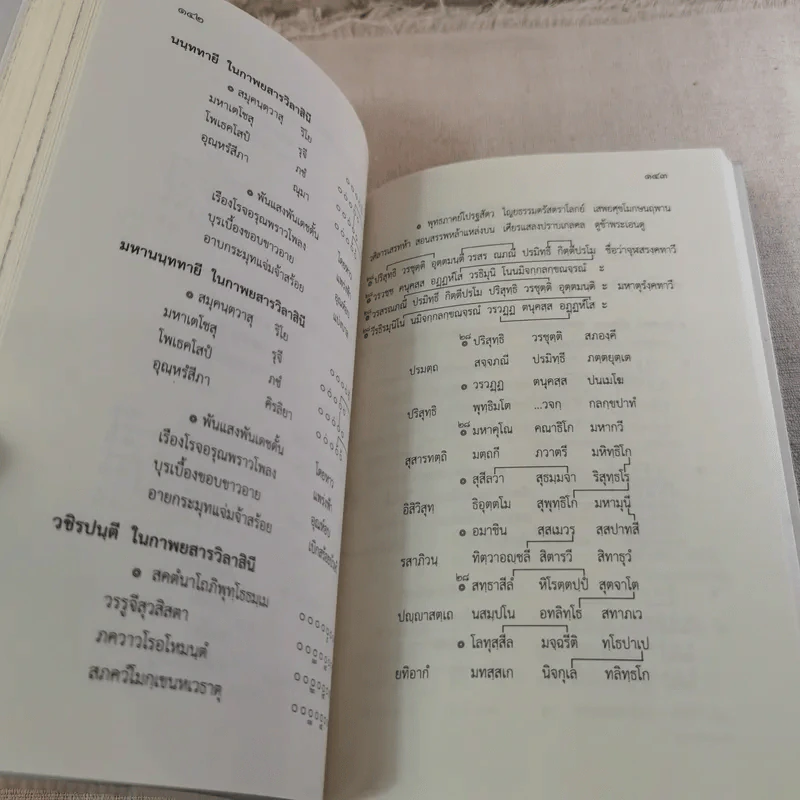 ๑๔๒
นนฺททายี ในกาพยสารวิลาสินี
๏ สมุคนฺตวาสุ ริโย
มหาเตโชสุ รุจี
โพเธคโสปํ ภชํ
อุณฺหรํสีภา ณฺมา
๏ พันแสงพันเตชตั้น
เรืองโรจอรุณพราวโพลง โดยหาว
บุรเบื้องขอบขาวอาย แพร่งฟ้า
อาบกระมุทแจ่มจ้าสร้อย
มหานนฺททายี ในกาพยสารวิลาสินี
๏ สมุคนฺตวาสุ ริโย
มหาเตโชสุ รุจี
โพเธคโสปํ ภชํ
อุณฺหรํสีภา ศิรลิยา
๏ พันแสงพันเตชตั้น
เรืองโรจอรุณพราวโพลง โดยหาว
บุรเบื้องขอบขาวอาย แพร่งฟ้า
อายกระมุทแจ่มจ้าสร้อย
วชิรปนฺตี ในกาพยสารวิลาสินี
๏ สคตํนาโถภิพุทฺโธธมฺเม
วรรูจีสุวสิสตา
ภควาวโรอโหมนฺตํ
สภควํโมกฺเขนหเวธาตุ
๑๔๓
๏ พุทธภาคย์ไปรฐสัตว ไญยธรรมตรีสตราโลกย์ เสพยศุขโมกษนฤพาน
วศิสารนสรทห้า สอนสรรพหล้าแหล่งบน เศียรแสลงปราบเกลศล ดูข้าพระเอนดู
๒๘ ปริสุทฺธิ วรชุตฺติ อุตฺตมนฺติ วรสร ณภณี ปรมิทธี กิตฺติปรโม ชื่อว่าจุฬสรงคหาวี
๏ วรวชช คนุคสฺส อฏฺฏหํโส วรธิมุนิ โนนมิจกฺกลกฺขณจุรณํ ะ
๒๘ วรสรณภณี ปรมิทธี กิตฺติปรโม ปริสุทธิ วรชุตฺติ อุตฺตมนฺติ ะ มหาตุรังคหาวี
๏ วีรธิรมุนิโน นมิจกฺกลกฺขณจุรณํ วรวฏฺฏ ตนุคสฺส อฏฺฏหํโส ะ
๒๘ ปริสุทฺธิ วรชุตฺติ สภองคี
ปรมตฺถ สจฺจภณี ปรมิทฺธี ภตฺตยุตฺเต
๏ วรวฏฺฏ ตนุคสฺส ปนเมโฆ
ปริสุทฺธิ พุทฺธิมโต ...วจกฺ กลกฺขปาทํ
๒๘ ๏ มหาคุโณ คณาธิโก มหากวี
สุสารทตฺถิ มตฺถกี ภวาตรี มหิทฺธิโก
๏ สุสีลวา สุธมฺมจํา ริสุทฺธโร
อิสิวิสุทฺ ธิอุตฺตโม สุพุทฺธิโก มหามุนี
๏ อมาชิน สฺสเมวร สฺสปาทสี
รสาภิวนฺ ทิตฺวาอญฺชลี สิตารวี สิทาธุวํ
๒๘ ๏ สทฺธาสีลํ หิโรตตปฺปํ สุตจาโต
ปญฺญาสตฺเถ นสมฺปโน อทลิทฺโธ สทาภเว
๏ โลทุสฺสีล มจฺฉรีติ ทฺโธปาเป
ยทิอากํ มทสฺสเก นิจกุเล ทลิทฺธโก